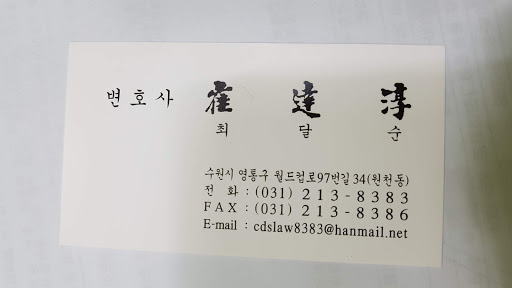 변호사 崔 達 淳
최 달 순
수원시 영통구 월드컵로97번길 34(원천동)
전 화 : (031) 213-8383
FAX : (031) 213-8386
E-mail : cdslaw8383@hanmail.net